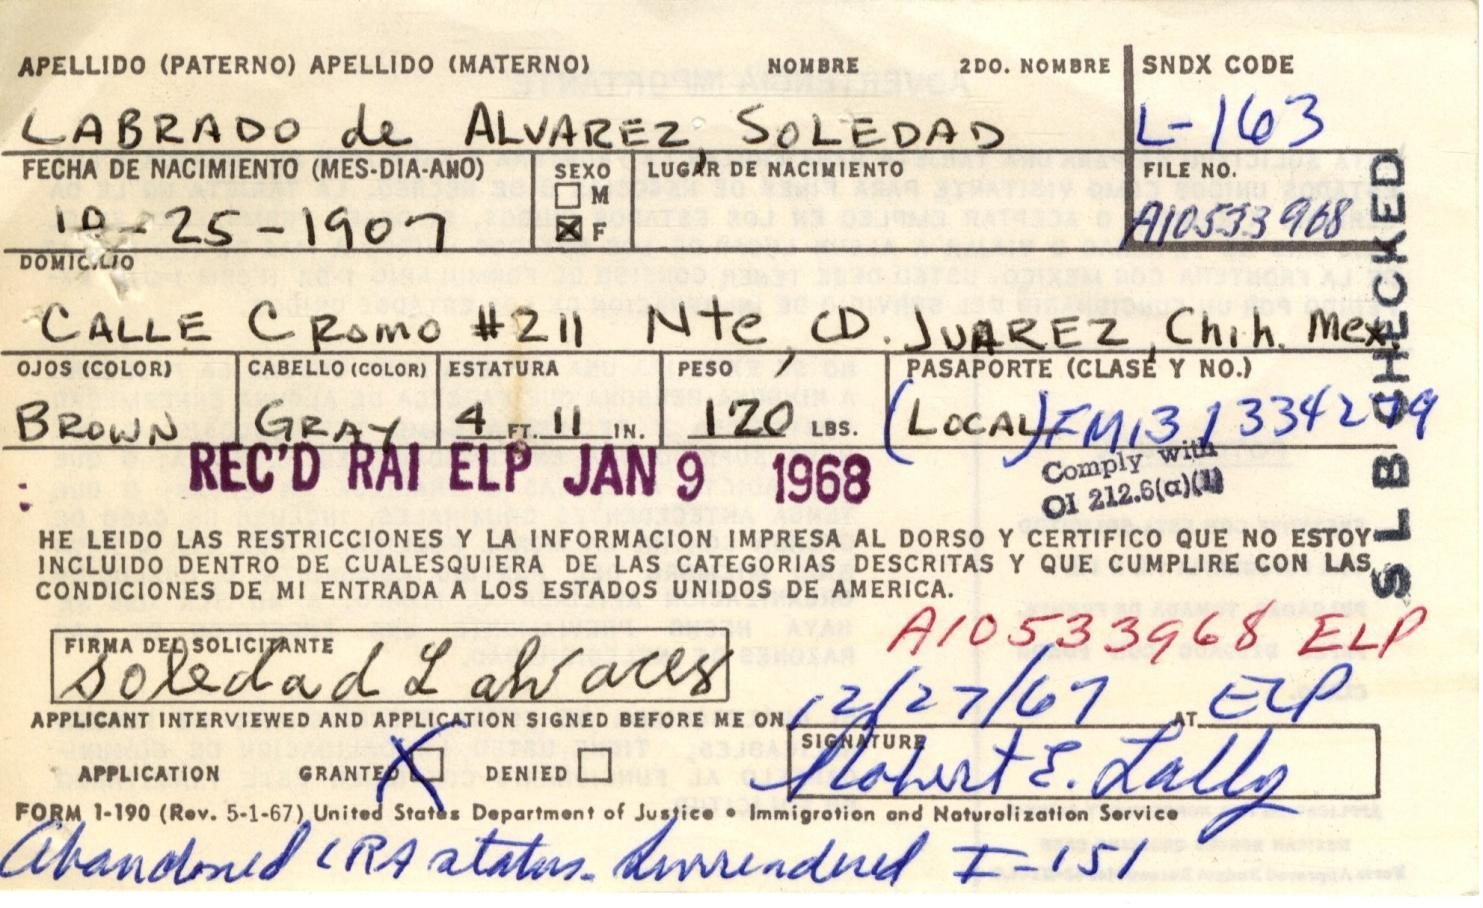 APELLIDO (PATERNO) APELLIDO (MATERNO) NOMBRE 2DO. NOMBRE SNDX CODE
LABRADO de ALVAREZ, SOLEDAD L-163
FECHA DE NACIMIENTO (MES-DIA-AÑO) SEXO LUGAR DE NACIMIENTO FILE NO.
M
10-25-1907 F A10533968
DOMICILIO
CALLE CROMO #211 Nte, CD. JUAREZ, Chih. Mex
OJOS (COLOR) CABELLO (COLOR) ESTATURA PESO PASAPORTE (CLASE Y NO.)
BROWN GRAY 4 FT. 11 IN. 120 LBS. (LOCAL) FM13 1334279
REC'D RAI ELP JAN 9 1968
Comply with
OI 212.6(a)
SLB CHECKED
HE LEIDO LAS RESTRICCIONES Y LA INFORMACION IMPRESA AL DORSO Y CERTIFICO QUE NO ESTOY
INCLUIDO DENTRO DE CUALESQUIERA DE LAS CATEGORIAS DESCRITAS Y QUE CUMPLIRE CON LAS
CONDICIONES DE MI ENTRADA A LOS ESTADOS UNIDOS DE AMERICA.
A10533968 ELP
FIRMA DEL SOLICITANTE
Soledad L Alvarez
APPLICANT INTERVIEWED AND APPLICATION SIGNED BEFORE ME ON 12/27/67 AT ELP
SIGNATURE
Robert E. Lally
APPLICATION GRANTED X DENIED
FORM I-190 (Rev. 5-1-67) United States Department of Justice • Immigration and Naturalization Service
Abandoned LRA status. Surrendered I-151